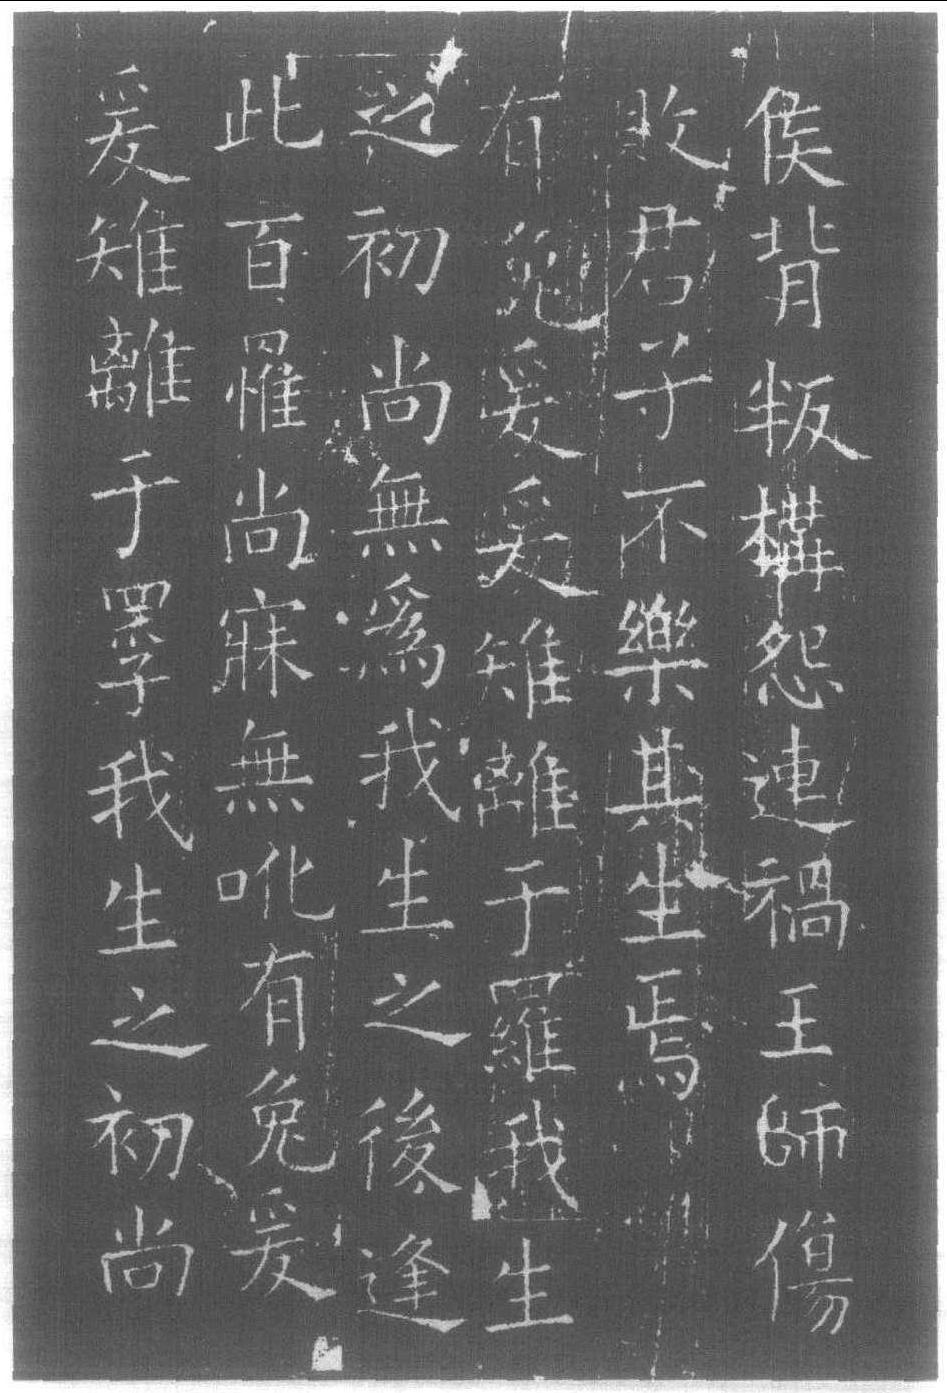 侯背叛構怨連禍王師傷
敗君子不樂其生焉
有兔爰爰雉離于羅我生
之初尚無為我生之後逢
此百罹尚寐無吪有兔爰
爰雉離于罦我生之初尚